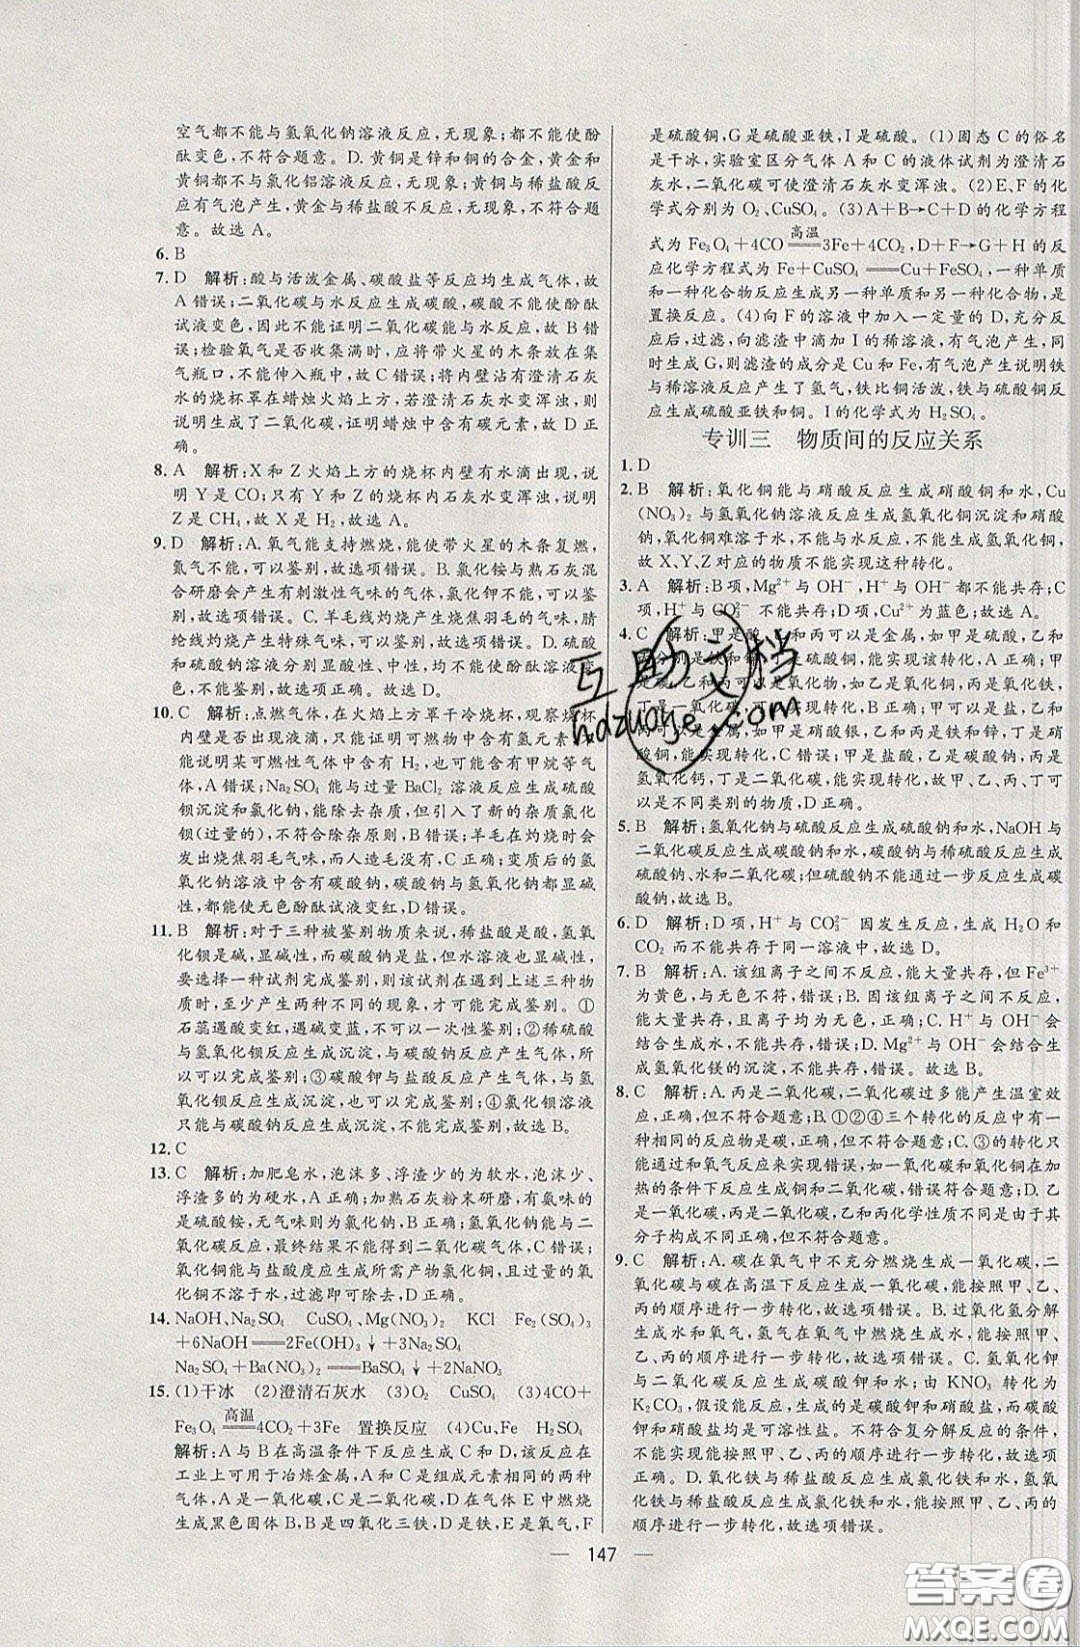 空气都不能与氢氧化钠溶液反应,无现象;都不能使酚
酞变色,不符合题意。D.黄铜是锌和铜的合金,黄金和
黄铜都不与氯化铝溶液反应,无现象;黄铜与稀盐酸反
应有气泡产生,黄金与稀盐酸不反应,无现象,不符合题
意。故选A。
6. B
7. D 解析:酸与活泼金属、碳酸盐等反应均生成气体,故
A错误;二氧化碳与水反应生成碳酸,碳酸不能使酚酞
试液变色,因此不能证明二氧化碳能与水反应,故B错
误;检验氧气是否收集满时,应将带火星的木条放在集
气瓶口,不能伸入瓶中,故C错误;将内壁沾有澄清石灰
水的烧杯罩在蜡烛火焰上方,若澄清石灰水变浑浊,则
说明生成了二氧化碳,证明蜡烛中含有碳元素,故D
正确。
8. A 解析:X和Z火焰上方的烧杯内壁有水滴出现,
说明Y是CO;只有Y和Z的烧杯内石灰水变浑浊,说明
Z是CH₄,故X是H₂,故选A。
9. D 解析:A.氧气能支持燃烧,能使带火星的木条复燃,
氮气不能,可以鉴别,故选项错误。B.氯化铵与熟石灰混
合研磨会产生有刺激性气味的气体,氯化钾不能,可以鉴
别,故选项错误。C.羊毛线灼烧产生烧焦羽毛的气味,腈
纶线灼烧产生特殊气味,可以鉴别,故选项错误。D.硫酸
和硫酸钠溶液分别显酸性、中性,均不能使酚酞溶液变
色,不能鉴别,故选项正确。故选D。
10. C 解析:点燃气体,在火焰上方罩干冷烧杯,观察烧杯
内壁是否出现液滴,只能证明可燃物中含有氢元素,不
能说明某可燃性气体中含有H₂,可能含有甲烷等气体,
A错误;Na₂SO₄与过量BaCl₂溶液反应生成硫酸
钡沉淀和氯化钠,能除去杂质,但引入了新的杂质氯化
钡(过量的),不符合除杂原则,B错误;羊毛在灼烧时会
发出烧焦羽毛气味,而人造毛没有,C正确;变质后的氢
氧化钠溶液中含有碳酸钠,碳酸钠与氢氧化钠都显碱
性,都能使无色酚酞试液变红,D错误。
11. B 解析:对于三种被鉴别物质来说,稀盐酸是酸,氢氧
化钡是碱,显碱性;而碳酸钠是盐,但水溶液显碱性,
要选择一种试剂完成鉴别,则该试剂在遇到上述三种物
质时,至少产生两种不同的现象,才可能完成鉴别。①
石蕊遇酸变红,遇碱变蓝,不可以一次性鉴别;②稀硫酸
与氢氧化钡反应生成沉淀,与碳酸钠反应产生气体,所
以可以完成鉴别;③碳酸钾与盐酸反应产生气体,与氢
氧化钡反应生成沉淀,可以完成鉴别;④氯化钡溶液
只能与碳酸钠反应生成沉淀,不能完成鉴别,故选B。
12. C
13. C 解析:加肥皂水,泡沫多、浮渣少的为软水,泡沫少、
浮渣多的为硬水,A正确;加熟石灰粉末研磨,有氨味的
是硫酸铵,无气味则为氯化钠,B正确;氢氧化钠能与二氧
化碳反应,最终结果不能得到二氧化碳气体,C错误;
氧化铜能与盐酸度应生成所需产物氯化铜,且过量的氧
化铜不溶于水,过滤即可除去,D正确。
14. NaOH、Na₂SO₄ CuSO₄、Mg(NO₃)₂ KCl Fe₂(SO₄)₃
+6NaOH══2Fe(OH)₃↓+3Na₂SO₄
Na₂SO₄+Ba(NO₃)₂══BaSO₄↓+2NaNO₃
15. (1)干冰 (2)澄清石灰水 (3)O₂ CuSO₄ (3)4CO+
Fe₃O₄ 高温══4CO₂+3Fe 置换反应 (4)Cu、Fe H₂SO₄
解析:A与B在高温条件下反应生成C和D,该反应在
工业上可用于冶炼金属,A和C是组成元素相同的两种
气体,A是一氧化碳,C是二氧化碳;D在气体E中燃烧
生成黑色固体B,B是四氧化三铁,D是铁,E是氧气,F
是硫酸铜,G是硫酸亚铁,I是硫酸。(1)固态C的俗名
是干冰,实验室区分气体A和C的液体试剂为澄清石
灰水,二氧化碳可使澄清石灰水变浑浊。(2)E、F的化
学式分别为O₂、CuSO₄。(3)A+B→C+D的化学方程
式为Fe₃O₄+4CO 高温══3Fe+4CO₂,D+F→G+H的反
应化学方程式为Fe+CuSO₄══Cu+FeSO₄,一种单质
和一种化合物反应生成另一种单质和另一种化合物,是
置换反应。(4)向F的溶液中加入一定量的D,充分反
应后,过滤,向滤渣中滴加I的稀溶液,有气泡产生,同
时生成G,则滤渣的成分是Cu和Fe,有气泡产生说明铁
与稀溶液反应产生了氢气,铁比铜活泼,铁与硫酸铜反
应生成硫酸亚铁和铜。I的化学式为H₂SO₄。
专训三 物质间的反应关系
1. D
2. B 解析:氧化铜能与硝酸反应生成硝酸铜和水,Cu
(NO₃)₂与氢氧化钠溶液反应生成氢氧化铜沉淀和硝酸
钠,氧化铜难溶于水,不能与水反应生成氢氧化铜,
故X、Y、Z对应的物质不能实现这种转化。
3. A 解析:B项,Mg²⁺与OH⁻,H⁺与OH⁻都不能共存;C
项,H⁺与CO₃²⁻不能共存;D项,Cu²⁺为蓝色;故选A。
4. C 解析:甲是酸,乙和丙可以是金属,如甲是硫酸,乙和
丙分别是铁和锌,丁是硫酸铜,能实现该转化,A正确;甲是
氧,乙和丙可以是氧化物,如乙是氧化铜,丙是氧化铁,
丁是一氧化碳,可以实现转化,B正确;丙可以是盐,乙和
丁可以是金属,如丙是硝酸银,乙、丁是铁和锌,甲是硝
酸铜,能够实现转化,C错误;甲是盐酸,乙是碳酸钠,丙是
氢氧化钙,丁是二氧化碳,能实现转化,故甲、乙、丙、丁可
以是不同类别的物质,D正确。
5. B 解析:氢氧化钠与硫酸反应生成硫酸钠和水,NaOH与
二氧化碳反应生成碳酸钠和水,碳酸钠与稀硫酸反应生成硫酸
钠、水和二氧化碳;但硫酸钠不能通过一步反应生成碳
酸钠,故选B。
6. D 解析:D项,H⁺与CO₃²⁻因发生反应,生成H₂O和
CO₂而不能共存于同一溶液中,故选D。
7. B 解析:A.该组离子之间不反应,能大量共存,但Fe³⁺
为黄色,与无色不符,错误;B.因该组离子之间不反应,
能大量共存,且离子均为无色,正确;C.H⁺与OH⁻会
结合生成水,不能共存,错误;D.Mg²⁺与OH⁻会结合生
成氢氧化镁的沉淀,不能共存,错误。故选B。
8. C 解析:A.丙是二氧化碳,二氧化碳过多能产生温室效
应,正确,但不符合题意;B.①②④三个转化的反应中有
一种相同的反应物是碳,正确,但不符合题意;C.③的转化
只能通过和氧气反应来实现错误,如一氧化碳和氧化铜在
加热的条件下反应生成铜和二氧化碳,错误符合题意;D.
乙是一氧化碳,丙是二氧化碳,乙和丙化学性质不同是由于其
分子构成不同,正确,但不符合题意。
9. C 解析:A.碳在氧气中不充分燃烧生成一氧化碳,二
氧化碳与碳在高温下反应生成一氧化碳,能按照甲、乙、
丙的顺序进行一步转化,故选项错误。B.过氧化氢分解
生成水和氧气,氢气在氧气中燃烧生成水,能按照甲、
乙、丙的顺序进行一步转化,故选项错误。C.氢氧化钾
与二氧化碳反应生成碳酸钾和水;由KNO₃转化为
K₂CO₃,假设能反应,生成物是碳酸钾和硝酸盐,但碳酸
钾和硝酸盐均可溶,不符合复分解反应的条件,
不能实现按照甲、乙、丙的顺序进行一步转化,故选项
正确。D.氧化铁与稀盐酸反应生成氯化铁和水,氢氧
化铁与稀盐酸反应生成氯化铁和水,能按照甲、乙、丙的
顺序进行一步转化,故选项错误。
147
互助文档
hdzuoye.com
答案圈
MXQE.COM